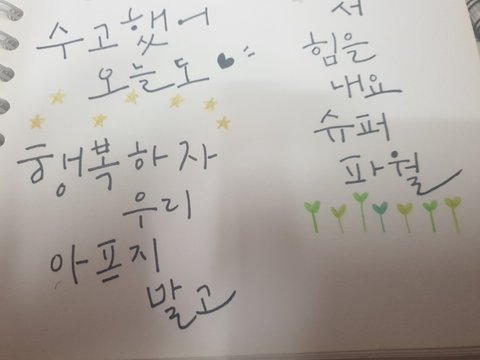 수고했어
오늘도
행복하자
우리
아프지
말고
서
힘을
내요
슈퍼
파월